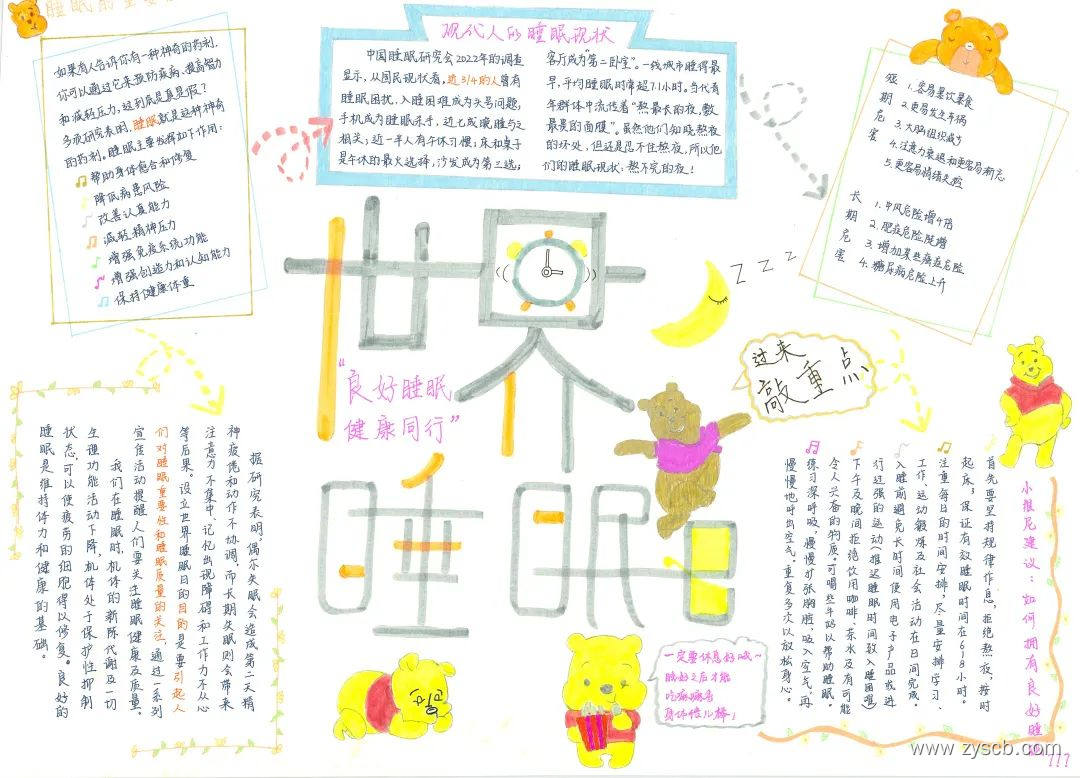 睡眠的重要
如果有人告诉你有一种神奇的药剂,
你可以通过它来预防疾病、提高智力
和减轻压力,这到底是真是假?
多项研究表明,睡眠就是这种神奇
的药剂。睡眠主要发挥如下作用:
帮助身体愈合和修复
降低病患风险
改善认真能力
减轻精神压力
增强免疫系统功能
增强创造力和认知能力
保持健康体重
现代人的睡眠现状
中国睡眠研究会2022年的调查
显示,从国民现状看,近3/4的人曾有
睡眠困扰,入睡困难成为头号问题;
手机成为睡眠杀手,近七成晚睡与之
相关;近一半人有午休习惯;床和桌子
是午休的最大选择,沙发成为第三选;
客厅成为"第二卧室"。一线城市睡得最
早,平均睡眠时常超7.1小时。当代青
年群体中流传着"熬最长的夜,敷
最贵的面膜"。虽然他们知晓熬夜
的坏处,但还是忍不住熬夜,所以他
们的睡眠现状:熬不完的夜!
短期危害
1.容易暴饮暴食
2.更易发生车祸
3.大脑组织减少
4.注意力衰退和更容易渐忘
5.更容易情绪失控
长期危害
1.中风危险增4倍
2.肥症危险陡增
3.增加某些癌症危险
4.糖尿病危险上升
世界
睡眠
zzz
"良好睡眠
健康同行"
过来
敲重点
据研究表明,偶尔失眠会造成第二天精
神疲倦和动作不协调,而长期失眠则会带来
注意力不集中、记忆出现障碍和工作力不从心
等后果。设立世界睡眠日的目的是要引起人
们对睡眠重要性和睡眠质量的关注,通过一系列
宣传活动提醒人们要关注睡眠健康及质量。
我们在睡眠时,机体的新陈代谢及一切
生理功能活动下降,机体处于保护性抑制
状态,可以使疲劳的细胞得以修复。良好的
睡眠是维持体力和健康的基础。
一定要休息好哦~
睡好之后才能
吃嘛嘛香
身体倍儿棒!
小维尼建议:如何拥有良好睡眠
首先要坚持规律作息,拒绝熬夜,按时
起床,保证有效睡眠时间在6~8小时。
注重每日的时间安排,尽量安排学习、
工作、运动锻炼及社会活动在日间完成。
入睡前避免长时间使用电子产品或进
行过强的运动(推迟睡眠时间致入睡困难)
下午及晚间拒绝饮用咖啡、茶水及有可能
令人兴奋的物质。可喝些牛奶以帮助睡眠。
练习深呼吸,慢慢扩张胸腔,吸入空气,再
慢慢地呼出空气。重复多次以放松身心。
www.zyscb.com